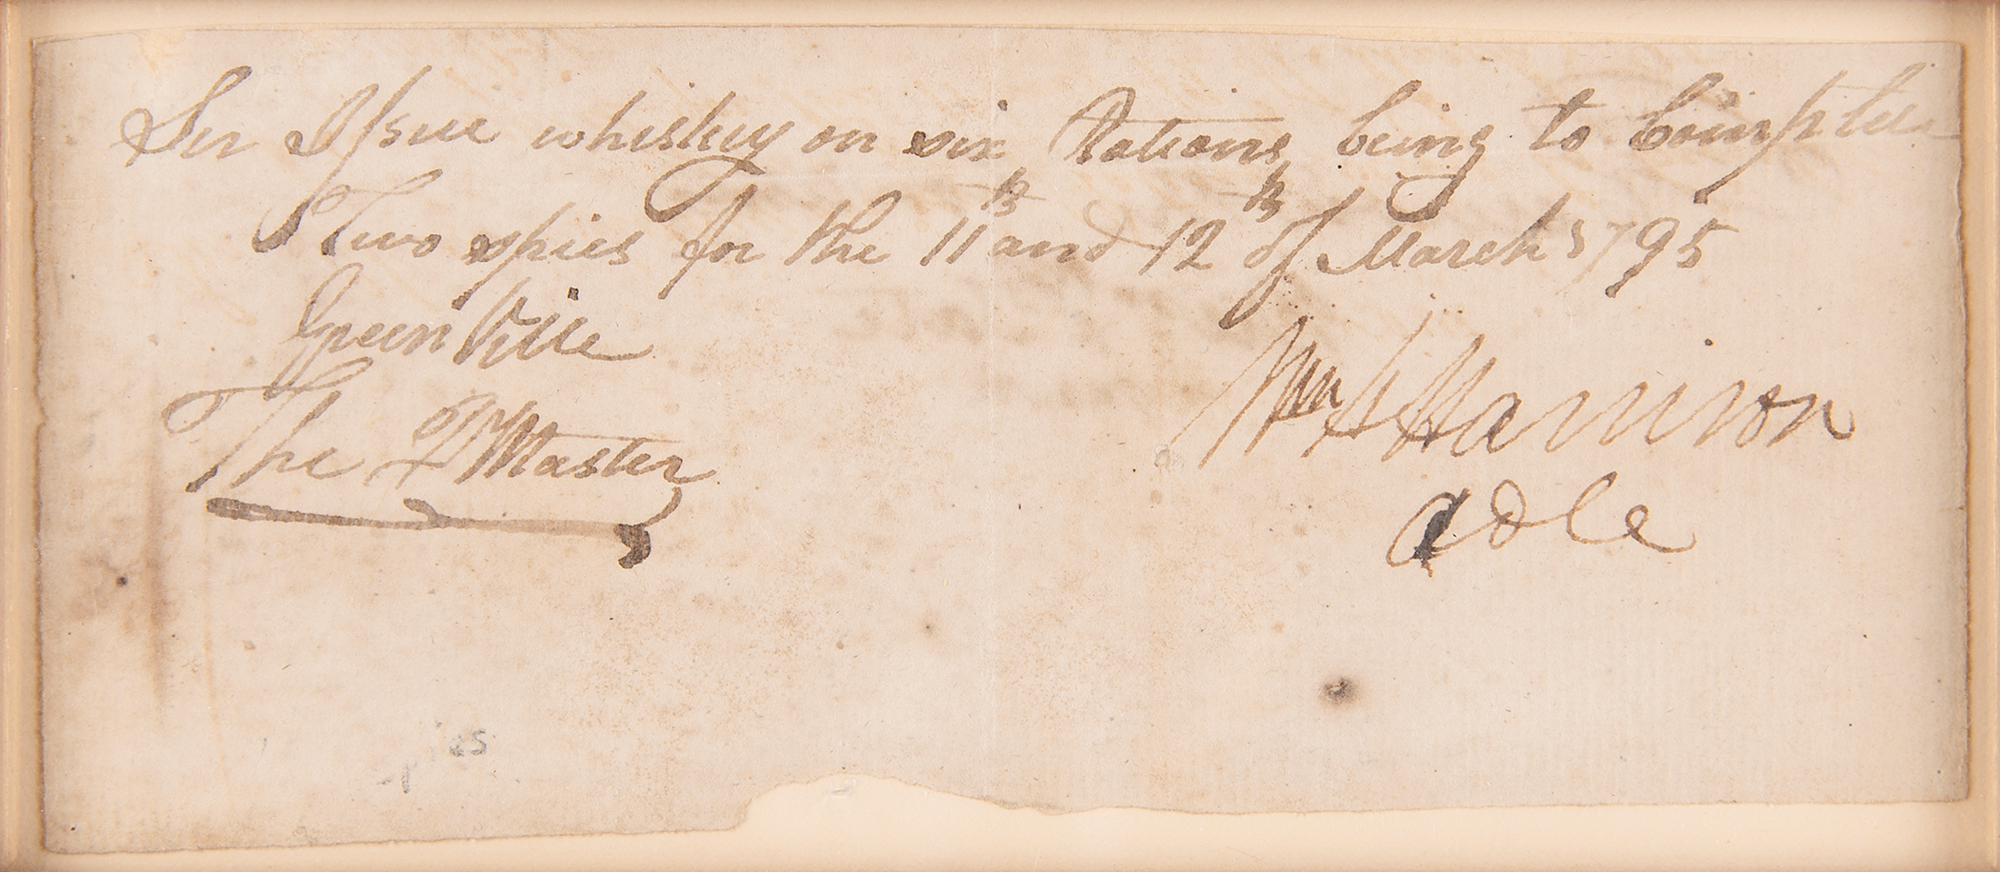 Sir Issue whiskey on six Rations being to Compleet
Two spies for the 11th and 12th of March 1795
GreenVille
The QrMaster
Wm H Harrison
adc